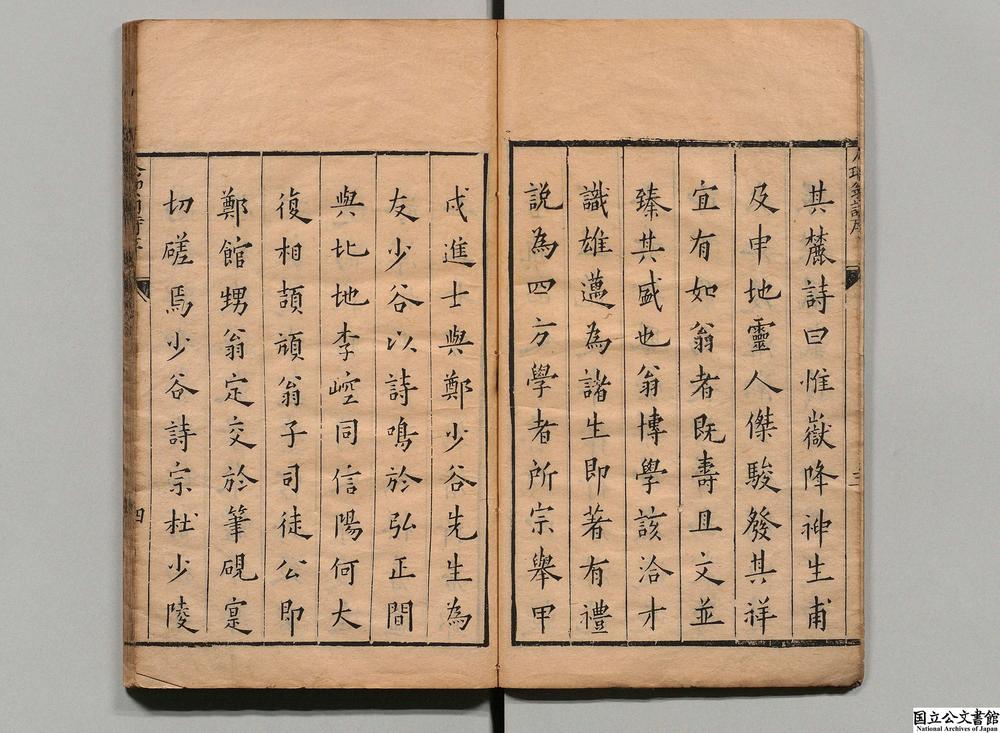 其麓詩曰惟嶽降神生甫
及申地靈人傑駿發其祥
宜有如翁者既壽且文並
臻其盛也翁博學該洽才
識雄邁為諸生即著有禮
說為四方學者所宗舉甲
戌進士與鄭少谷先生為
友少谷以詩鳴於弘正間
與北地李崆同信陽何大
復相頡頏翁子司徒公即
鄭館甥翁定交於筆硯寔
切磋焉少谷詩宗杜少陵
四
国立公文書館
National Archives of Japan